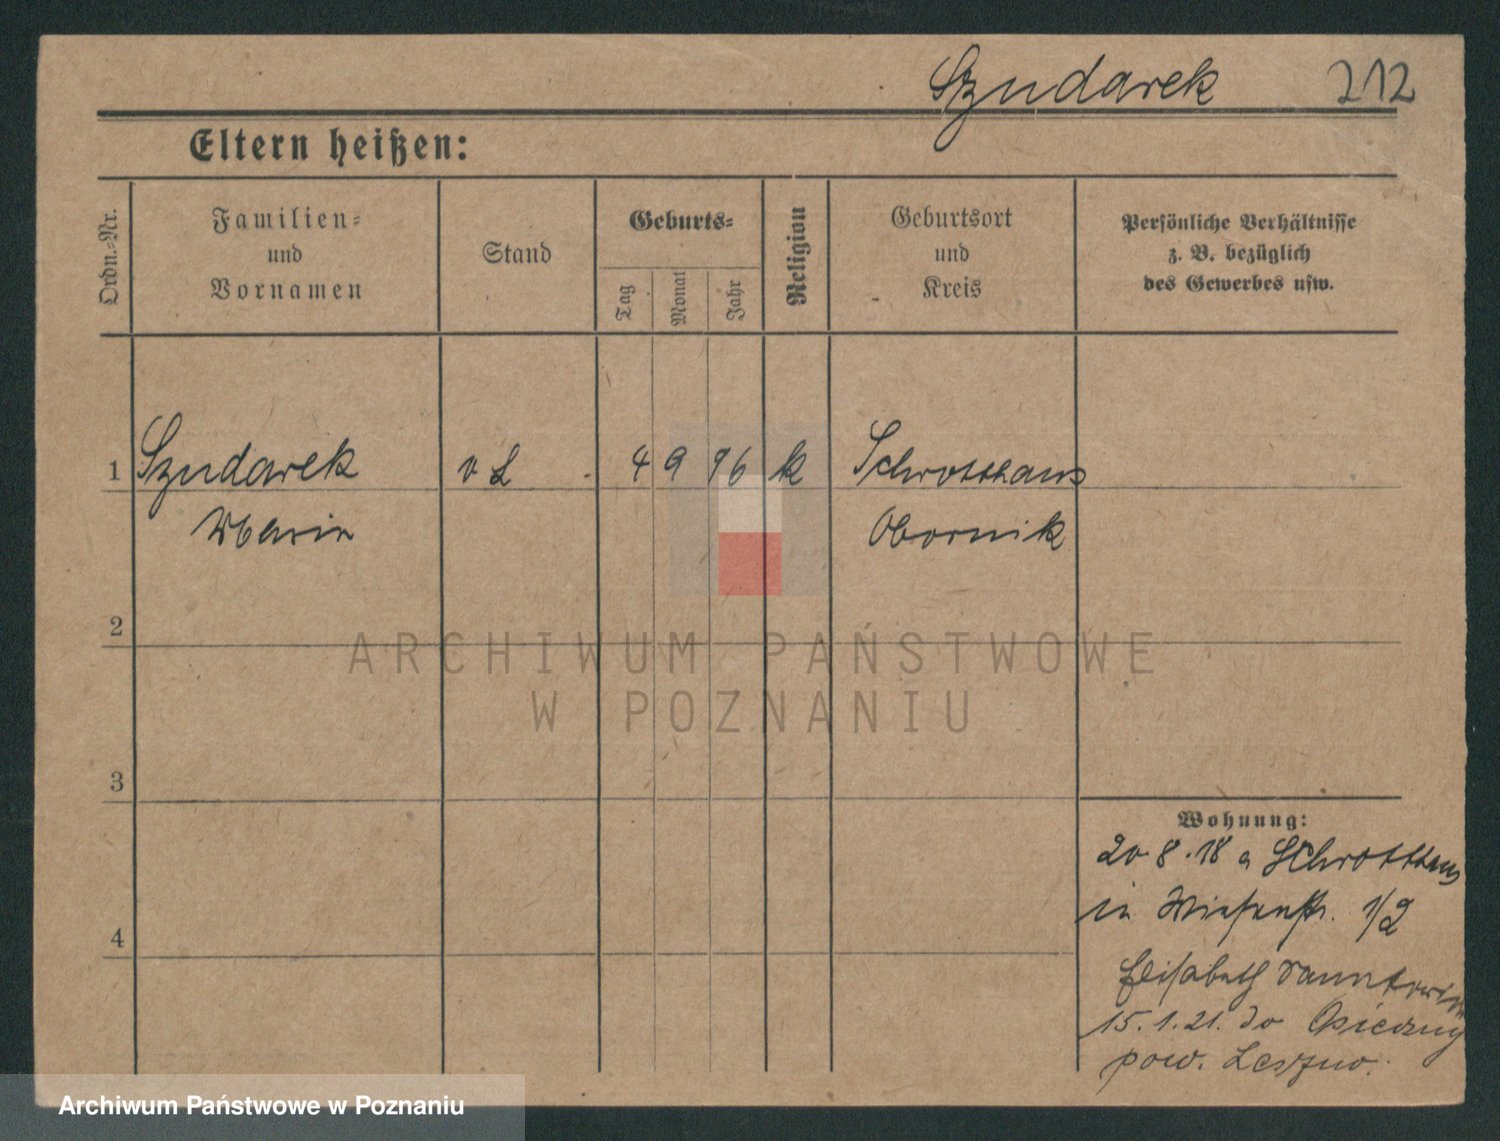 Szudarek 212
Eltern heißen:
Ordn.-Nr.
Familien-
und
Vornamen
Stand
Geburts-
Tag
Monat
Jahr
Religion
Geburtsort
und
Kreis
Persönliche Verhältnisse
z. B. bezüglich
des Gewerbes usw.
1 Szudarek v L 4 9 96 k Schrotthaus
Maria Obornik
2
3
4
Wohnung:
20.8.18 a Schrotthaus
in Wiesenstr. 1/2
Elisabeth
15.1.21. do
pow. Leszno.
ARCHIWUM PAŃSTWOWE
W POZNANIU
Archiwum Państwowe w Poznaniu